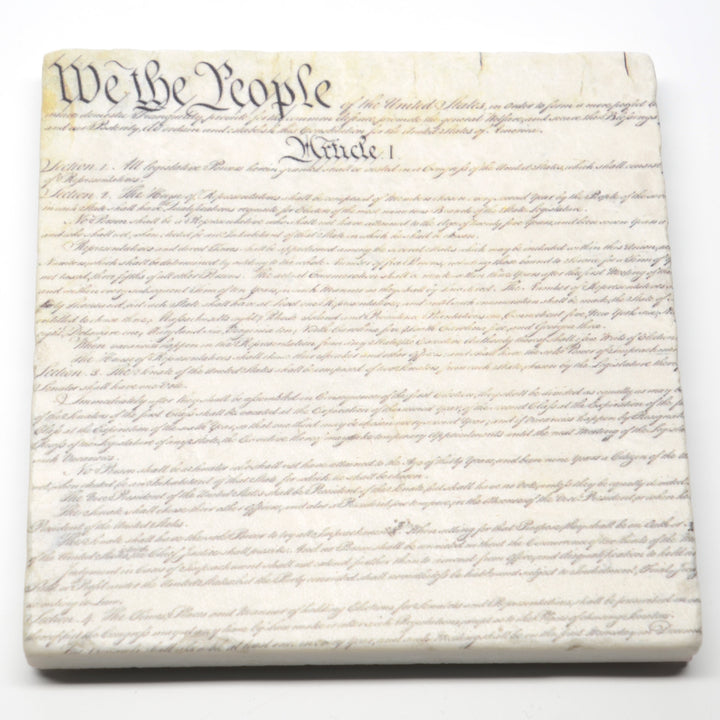 We the People of the United States, in order to form a more perfect
insure domestic Tranquility, provide for the common defence, promote the general Welfare, and secure the Blessings
and our Posterity, do ordain and establish this Constitution for the United States of America.
Article I
Section 1. All legislative Powers herein granted shall be vested in a Congress of the United States, which shall consist
of Representatives.
Section 2. The House of Representatives shall be composed of Members chosen every second Year by the People of the
in each State shall have the Qualifications requisite for Electors of the most numerous Branch of the State Legislature.
No Person shall be a Representative who shall not have attained to the Age of twenty five Years, and been seven Years a
who shall not, when elected, be an Inhabitant of that State in which he shall be chosen.
Representatives and direct Taxes shall be apportioned among the several States which may be included within this Union,
Numbers, which shall be determined by adding to the whole Number of free Persons, including those bound to Service for a Term of
not taxed, three fifths of all other Persons. The actual Enumeration shall be made within three Years after the first Meeting of the
and within every subsequent Term of ten Years, in such Manner as they shall by Law direct. The Number of Representatives
thirty Thousand, but each State shall have at Least one Representative; and until such enumeration shall be made, the State of
entitled to chuse three, Massachusetts eight, Rhode Island and Providence Plantations one, Connecticut five, New York six,
Delaware one, Maryland six, Virginia ten, North Carolina five, South Carolina five, and Georgia three.
When vacancies happen in the Representation from any State, the Executive Authority thereof shall issue Writs of Election
The House of Representatives shall chuse their Speaker and other Officers; and shall have the sole Power of Impeachment
Section 3. The Senate of the United States shall be composed of two Senators from each State, chosen by the Legislature
Senator shall have one Vote.
Immediately after they shall be assembled in Consequence of the first Election, they shall be divided as equally as may
of the Senators of the first Class shall be vacated at the Expiration of the second Year, of the second Class at the Expiration of the
Class at the Expiration of the sixth Year, so that one third may be chosen every second Year; and if Vacancies happen by
Recess of the Legislature of any State, the Executive thereof may make temporary Appointments until the next Meeting of the
such Vacancies.
No Person shall be a Senator who shall not have attained to the Age of thirty Years, and been nine Years a Citizen of the
not, when elected, be an Inhabitant of that State for which he shall be chosen.
The Vice President of the United States shall be President of the Senate, but shall have no Vote, unless they be equally divided.
The Senate shall chuse their other Officers, and also a President pro tempore, in the Absence of the Vice President, or when he
President of the United States.
The Senate shall have the sole Power to try all Impeachments. When sitting for that Purpose, they shall be on Oath
of the United States, the Chief Justice shall preside: And no Person shall be convicted without the Concurrence of two thirds of the
Judgment in Cases of Impeachment shall not extend further than to removal from Office, and disqualification to hold
Trust or Profit under the United States: but the Party convicted shall nevertheless be liable and subject to Indictment, Trial,
according to Law.
Section 4. The Times, Places and Manner of holding Elections for Senators and Representatives, shall be prescribed in
thereof; but the Congress may at any time by Law make or alter such Regulations, except as to the Places of chusing Senators.